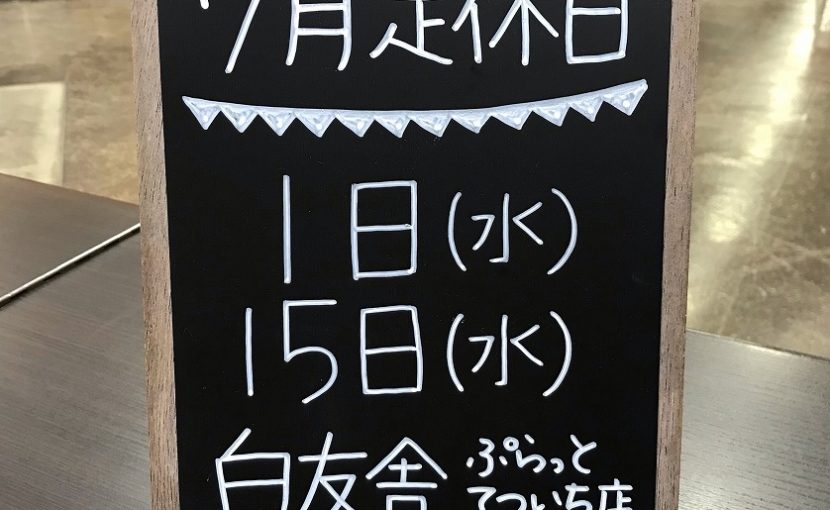 7月定休日
1日(水)
15日(水)
白友舎 ぷらっと
てついち店